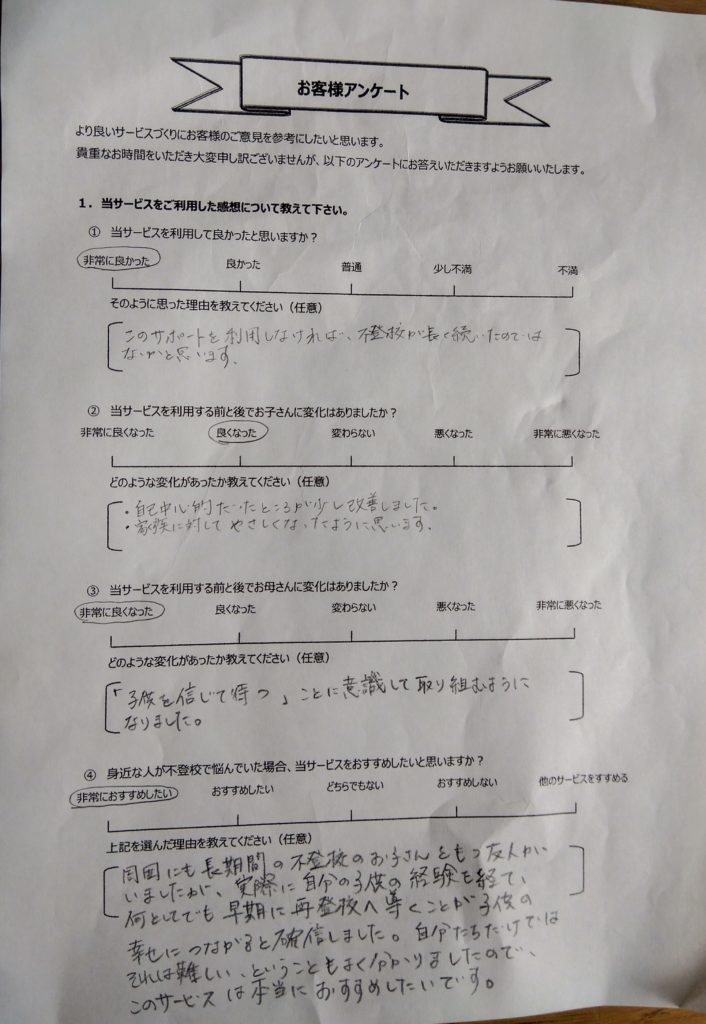 お客様アンケート
より良いサービスづくりにお客様のご意見を参考にしたいと思います。
貴重なお時間をいただき大変申し訳ございませんが、以下のアンケートにお答えいただきますようお願いいたします。
1. 当サービスをご利用した感想について教えて下さい。
① 当サービスを利用して良かったと思いますか？
非常に良かった 良かった 普通 少し不満 不満
そのように思った理由を教えてください（任意）
このサポートを利用しなければ、不登校が長く続いたのでは
ないかと思います。
② 当サービスを利用する前と後でお子さんに変化はありましたか？
非常に良くなった 良くなった 変わらない 悪くなった 非常に悪くなった
どのような変化があったか教えてください（任意）
・自己中心的だったところが少し改善しました。
・家族に対してやさしくなったように思います。
③ 当サービスを利用する前と後でお母さんに変化はありましたか？
非常に良くなった 良くなった 変わらない 悪くなった 非常に悪くなった
どのような変化があったか教えてください（任意）
「子供を信じて待つ」ことに意識して取り組むように
なりました。
④ 身近な人が不登校で悩んでいた場合、当サービスをおすすめしたいと思いますか？
非常におすすめしたい おすすめしたい どちらでもない おすすめしない 他のサービスをすすめる
上記を選んだ理由を教えてください（任意）
周囲にも長期間の不登校のお子さんをもつ友人がい
いましたが、実際に自分の子供の経験を経て、
何としてでも早期に再登校へ導くことが子供の
幸せにつながると確信しました。自分たちだけでは
それは難しい、ということもよく分かりましたので、
このサービスは本当におすすめしたいです。